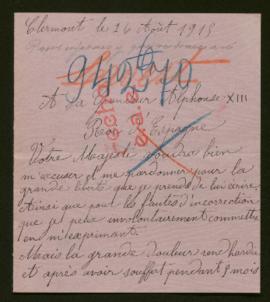 Clermont le 16 Août 1915
942570
A Sa Grandeur Alphonse XIII
Roi d'Espagne
Votre Majesté voudra bien
m'accuser et me pardonner pour la
grande liberté que je prends de lui écrire,
Ainsi que pour les fautes d'incorrection
que je peux involontairement commettre
en m'exprimant.
Mais la grande douleur rend hardie
et après avoir souffert pendant 9 mois